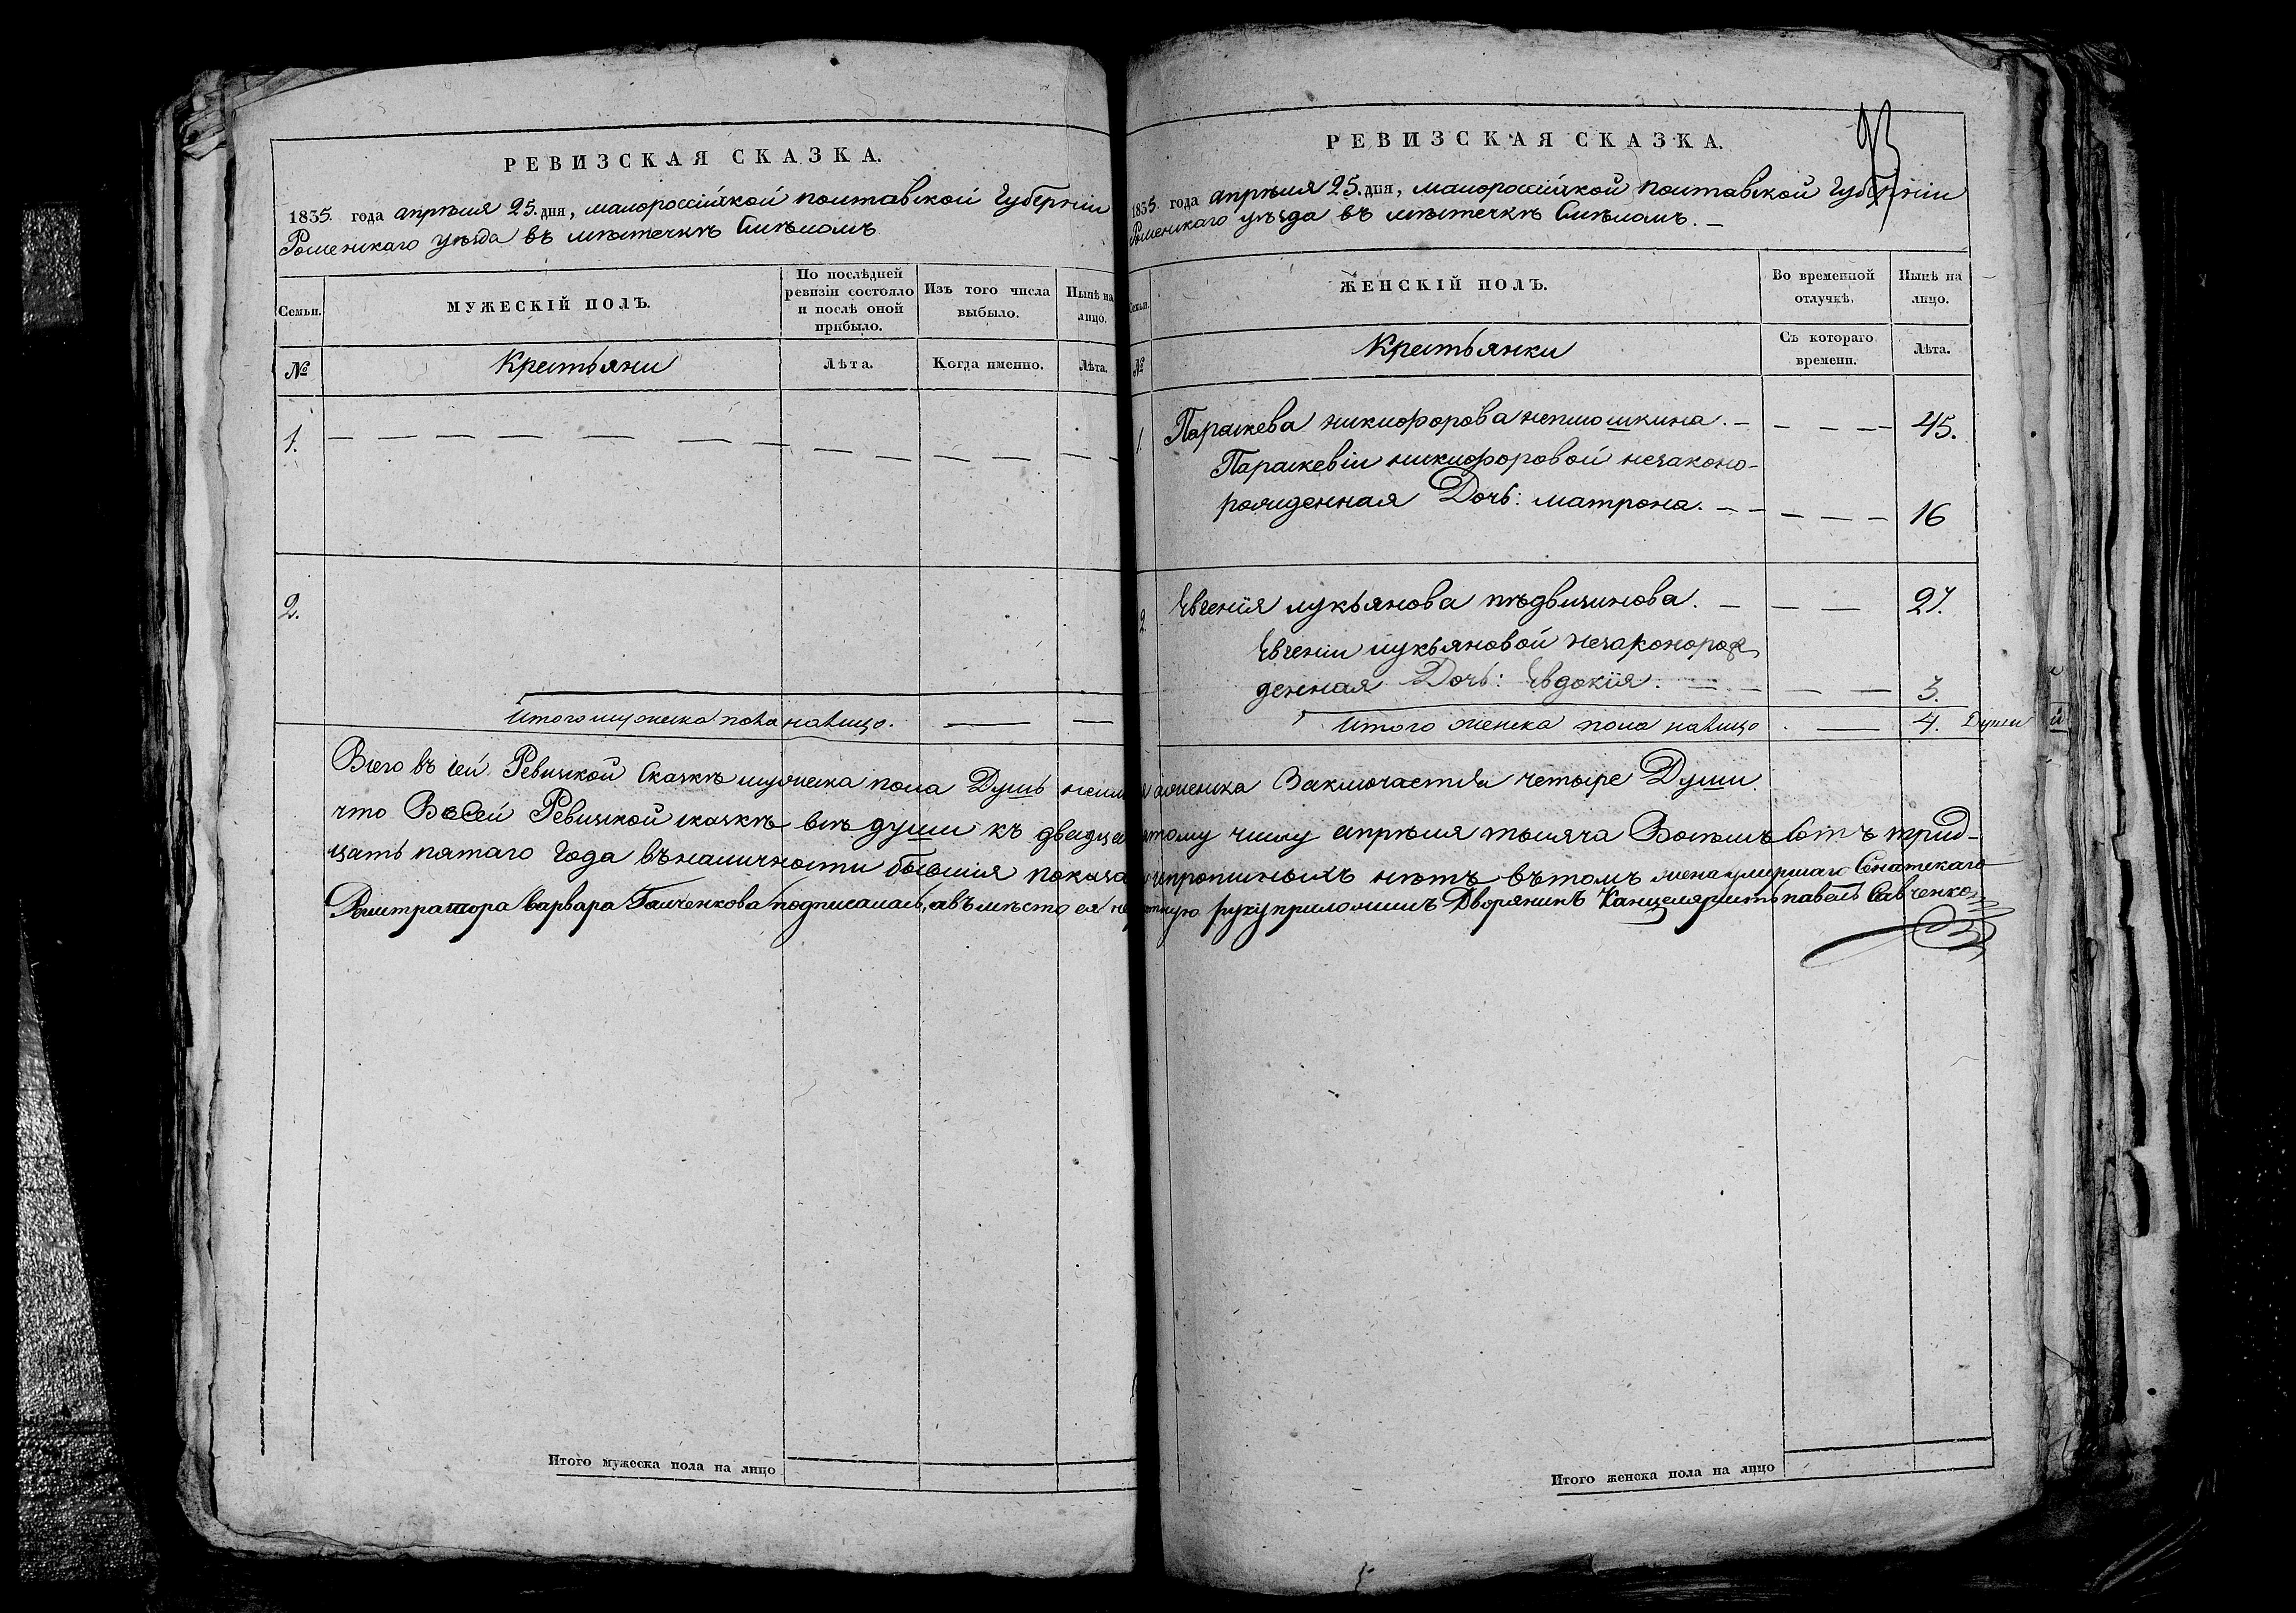 РЕВИЗСКАЯ СКАЗКА.
1835. года апрѣля 25. дня, малороссійской полтавской Губерніи
Роменскаго уѣзда въ мѣстечкѣ Смѣломъ
Семьи.
МУЖЕСКІЙ ПОЛЪ.
По послѣдней ревизіи состояло и послѣ оной прибыло.
Изъ того числа выбыло.
Нынѣ на лицо.
№
Крестьяни
Лѣта.
Когда именно.
Лѣта.
1.
2.
Итого мужеска пола налицо.
Итого мужеска пола на лицо
93
РЕВИЗСКАЯ СКАЗКА.
1835. года апрѣля 25. дня, малороссійской полтавской Губерніи
Роменскаго уѣзда въ мѣстечкѣ Смѣломъ. —
Семьи.
ЖЕНСКІЙ ПОЛЪ.
Во временной отлучкѣ.
Нынѣ на лицо.
№
Крестьянки
Съ котораго времени.
Лѣта.
1. Параскева никифорова — 45.
Параскевіи никифоровой незаконо-
рожденная Дочь: матрона. — 16
2. Евгенія лукьянова — 27.
Евгеніи лукьяновой незаконорож
денная Дочь: Евдокія. — 3.
Итого женска пола налицо. — 4. Души
Всего въ сей Ревизской Сказкѣ мужеска пола Душъ аженска Заключается четыре Души.
что Всей Ревизской сказкѣ всѣ души къ двадцать пятому числу апрѣля тысяча Восемъ Сотъ трид-
цать пятаго Года въналичности бывшія показаны ипрописныхъ нѣтъ вътомъ жена умершаго Сенатскаго
Регистратора Варвара Галченкова подписалась, авъмѣсто ея неграмотную руку приложилъ Дворянинъ Канцеляристъ павелъ Савченко
Итого женска пола на лицо